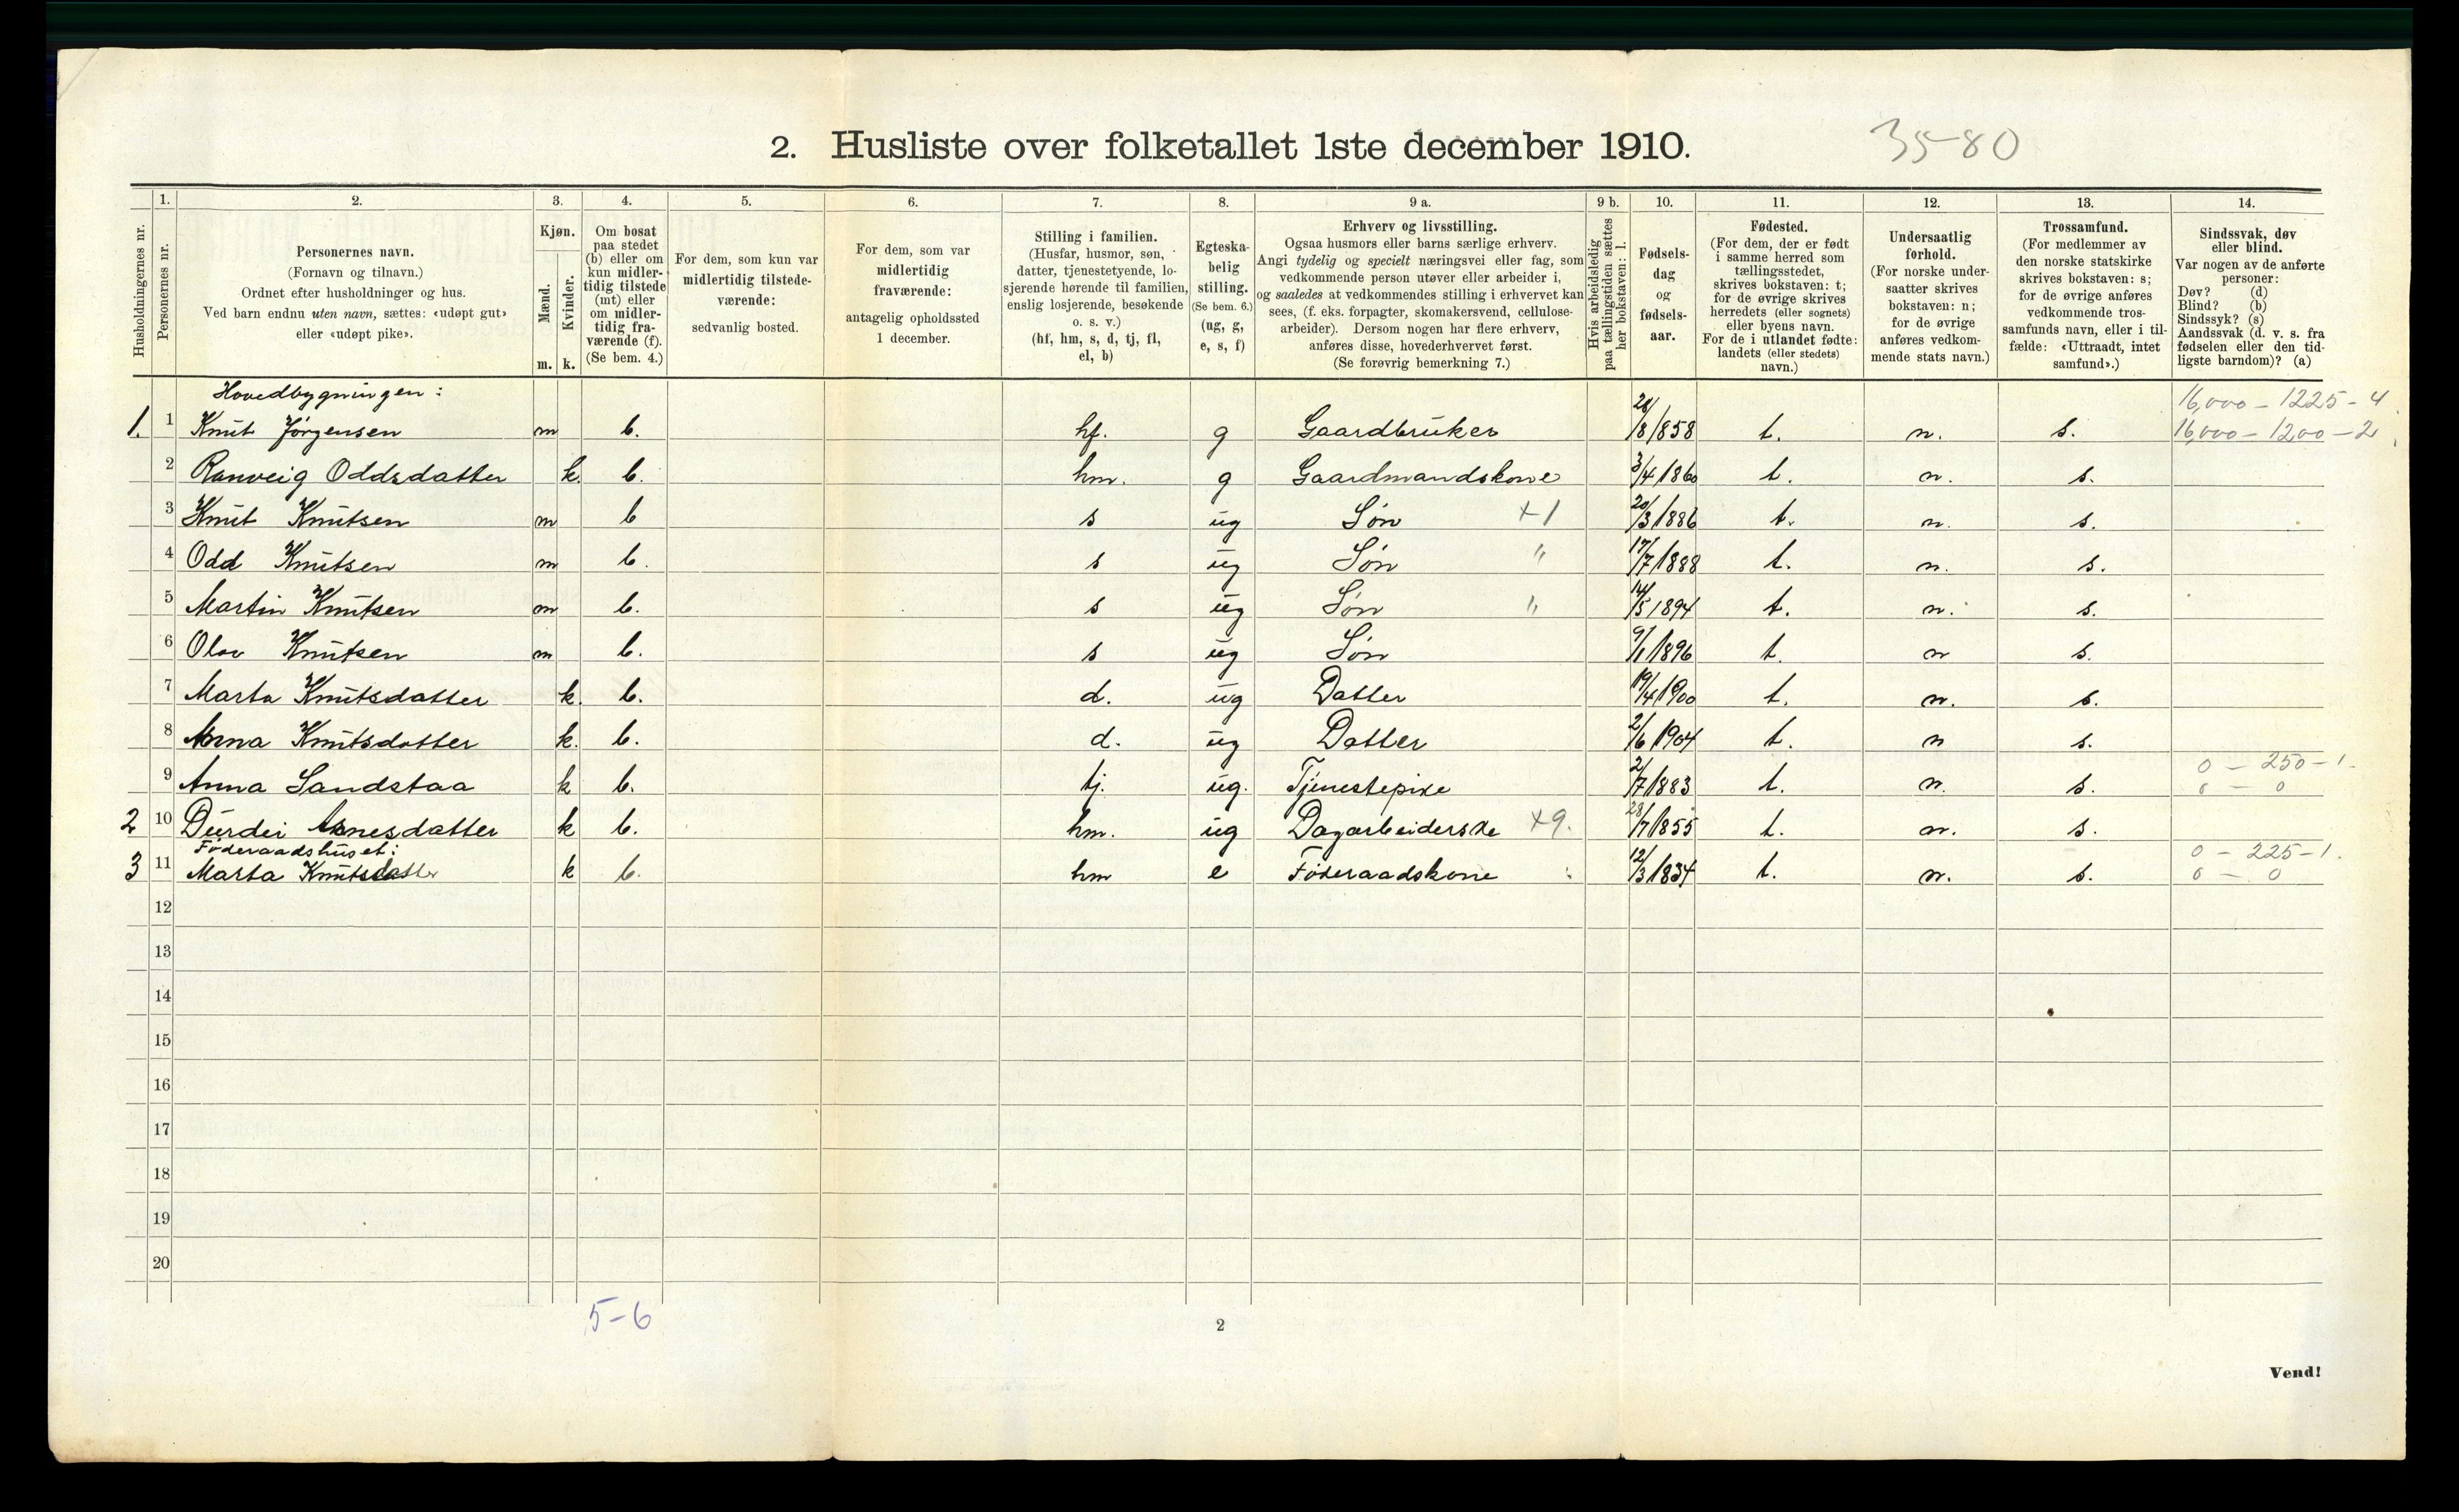 2. Husliste over folketallet 1ste december 1910.
35-80
Husholdningernes nr.
1.
Personernes nr.
2.
Personernes navn.
(Fornavn og tilnavn.)
Ordnet efter husholdninger og hus.
Ved barn endnu uten navn, sættes: «udøpt gut»
eller «udøpt pike».
3.
Kjøn.
Mænd.
Kvinder.
m. k.
4.
Om bosat
paa stedet
(b) eller om
kun midler-
tidig tilstede
(mt) eller
om midler-
tidig fra-
værende (f).
(Se bem. 4.)
5.
For dem, som kun var
midlertidig tilstede-
værende:
sedvanlig bosted.
6.
For dem, som var
midlertidig
fraværende:
antagelig opholdssted
1 december.
7.
Stilling i familien.
(Husfar, husmor, søn,
datter, tjenestetyende, lo-
sjerende hørende til familien,
enslig losjerende, besøkende
o. s. v.)
(hf, hm, s, d, tj, fl,
el, b)
8.
Egteska-
belig
stilling.
(Se bem. 6.)
(ug, g,
e, s, f)
9 a.
Erhverv og livsstilling.
Ogsaa husmors eller barns særlige erhverv.
Angi tydelig og specielt næringsvei eller fag, som
vedkommende person utøver eller arbeider i,
og saaledes at vedkommendes stilling i erhvervet kan
sees, (f. eks. forpagter, skomakersvend, cellulose-
arbeider). Dersom nogen har flere erhverv,
anføres disse, hovederhvervet først.
(Se forøvrig bemerkning 7.)
9 b.
Hvis arbeidsledig
paa tællingstiden sættes
her bokstaven: l.
10.
Fødsels-
dag
og
fødsels-
aar.
11.
Fødested.
(For dem, der er født
i samme herred som
tællingsstedet,
skrives bokstaven: t;
for de øvrige skrives
herredets (eller sognets)
eller byens navn.
For de i utlandet fødte:
landets (eller stedets)
navn.)
12.
Undersaatlig
forhold.
(For norske under-
saatter skrives
bokstaven: n;
for de øvrige
anføres vedkom-
mende stats navn.)
13.
Trossamfund.
(For medlemmer av
den norske statskirke
skrives bokstaven: s;
for de øvrige anføres
vedkommende tros-
samfunds navn, eller i til-
fælde: «Uttraadt, intet
samfund».)
14.
Sindssvak, døv
eller blind.
Var nogen av de anførte
personer:
Døv? (d)
Blind? (b)
Sindssyk? (s)
Aandssvak (d. v. s. fra
fødselen eller den tid-
ligste barndom)? (a)
Hovedbygningen:
16,000 - 1225 - 4
1. 1 Knut Jørgensen m b. hf. g Gaardbruker /8/858 t. n. s. 16,000 - 1200 - 2
2 Ranveig Oddsdatter k. b. hm. g Gaardmandskone 3/4 1860 t. n. s.
3 Knut Knutsen m b s ug Søn +1 20/3 1886 t. n. s.
4 Odd Knutsen m b. s ug Søn " 17/7 1888 t. n. s.
5 Martin Knutsen m b. s ug Søn " 14/5 1894 t. n. s.
6 Olav Knutsen m b. s ug Søn 9/1 1896 t. n s.
7 Marta Knutsdatter k. b. d. ug Datter 19/4 1900 t. n. s.
8 Anna Knutsdotter k. b. d. ug Datter 2/6 1904 t. n s.
0 - 250 - 1.
9 Anna Sandstaa k b. tj. ug. Tjenestepike 2/7 1883 t. n. s. 0 - 0
2 10 Durdei Arnesdatter k b. hm. ug Dagarbeiderske +9. 28/7 1855 t. n. s.
Føderaadshuset:
0 - 225 - 1.
3 11 Marta Knutsdatter k b. hm e Føderaadskone 12/3 1834 t. n. s. 0 - 0
12
13
14
15
16
17
18
19
20
5-6
2
Vend!